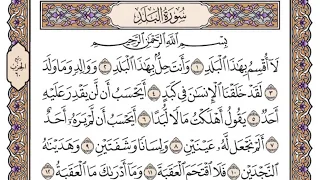 سُورَةُ الْبَلَدِ
بِسْمِ اللَّهِ الرَّحْمَٰنِ الرَّحِيمِ
لَا أُقْسِمُ بِهَٰذَا الْبَلَدِ ١ وَأَنتَ حِلٌّ بِهَٰذَا الْبَلَدِ ٢ وَوَالِدٍ وَمَا وَلَدَ
٣ لَقَدْ خَلَقْنَا الْإِنسَانَ فِي كَبَدٍ ٤ أَيَحْسَبُ أَن لَّن يَقْدِرَ عَلَيْهِ
أَحَدٌ ٥ يَقُولُ أَهْلَكْتُ مَالًا لُّبَدًا ٦ أَيَحْسَبُ أَن لَّمْ يَرَهُ أَحَدٌ
٧ أَلَمْ نَجْعَل لَّهُ عَيْنَيْنِ ٨ وَلِسَانًا وَشَفَتَيْنِ ٩ وَهَدَيْنَاهُ
النَّجْدَيْنِ ١٠ فَلَا اقْتَحَمَ الْعَقَبَةَ ١١ وَمَا أَدْرَاكَ مَا الْعَقَبَةُ ١٢